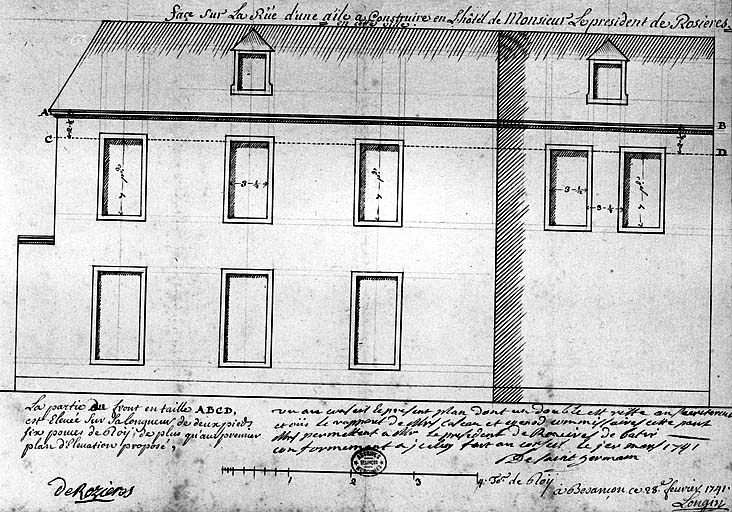 façe sur La Rüe d'une aîle a Construire en L'hôtel de Monsieur Le president de Rosieres.
en cette ville
A
B
C
D
2 ½
2 ½
7 pds
3 ½
7 pds
3 ½
3 ½
7 pds
La partie Du front en taille ABCD,
est Elevée sur sa longueur de deux pieds
six pouces de Roÿ; de plus qu'au premier
plan d'élevation proposé,
vu au conseil le present plan dont un double est resté au secretariat
et oüi le rapport de Mrs commissaires cette part
Mrs permettent a Mr Le president de Rosieres de batir
conformement a jceluy fait au conseil le mars 1741
De Saint germain
DeRozieres
1
2
3
4 Tses de Roÿ
BESANÇON
à Besançon ce 28e fevrier 1741.
Longin